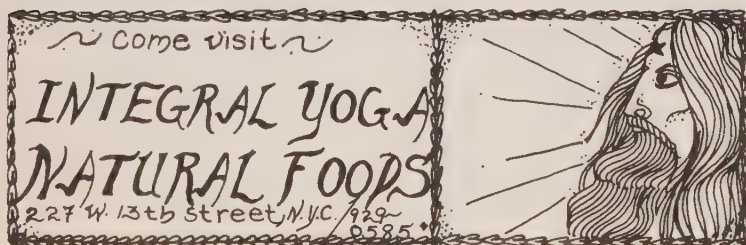 Come visit
INTEGRAL YOGA
NATURAL FOODS
227 W. 13th street, N.Y.C. / 929~
0585